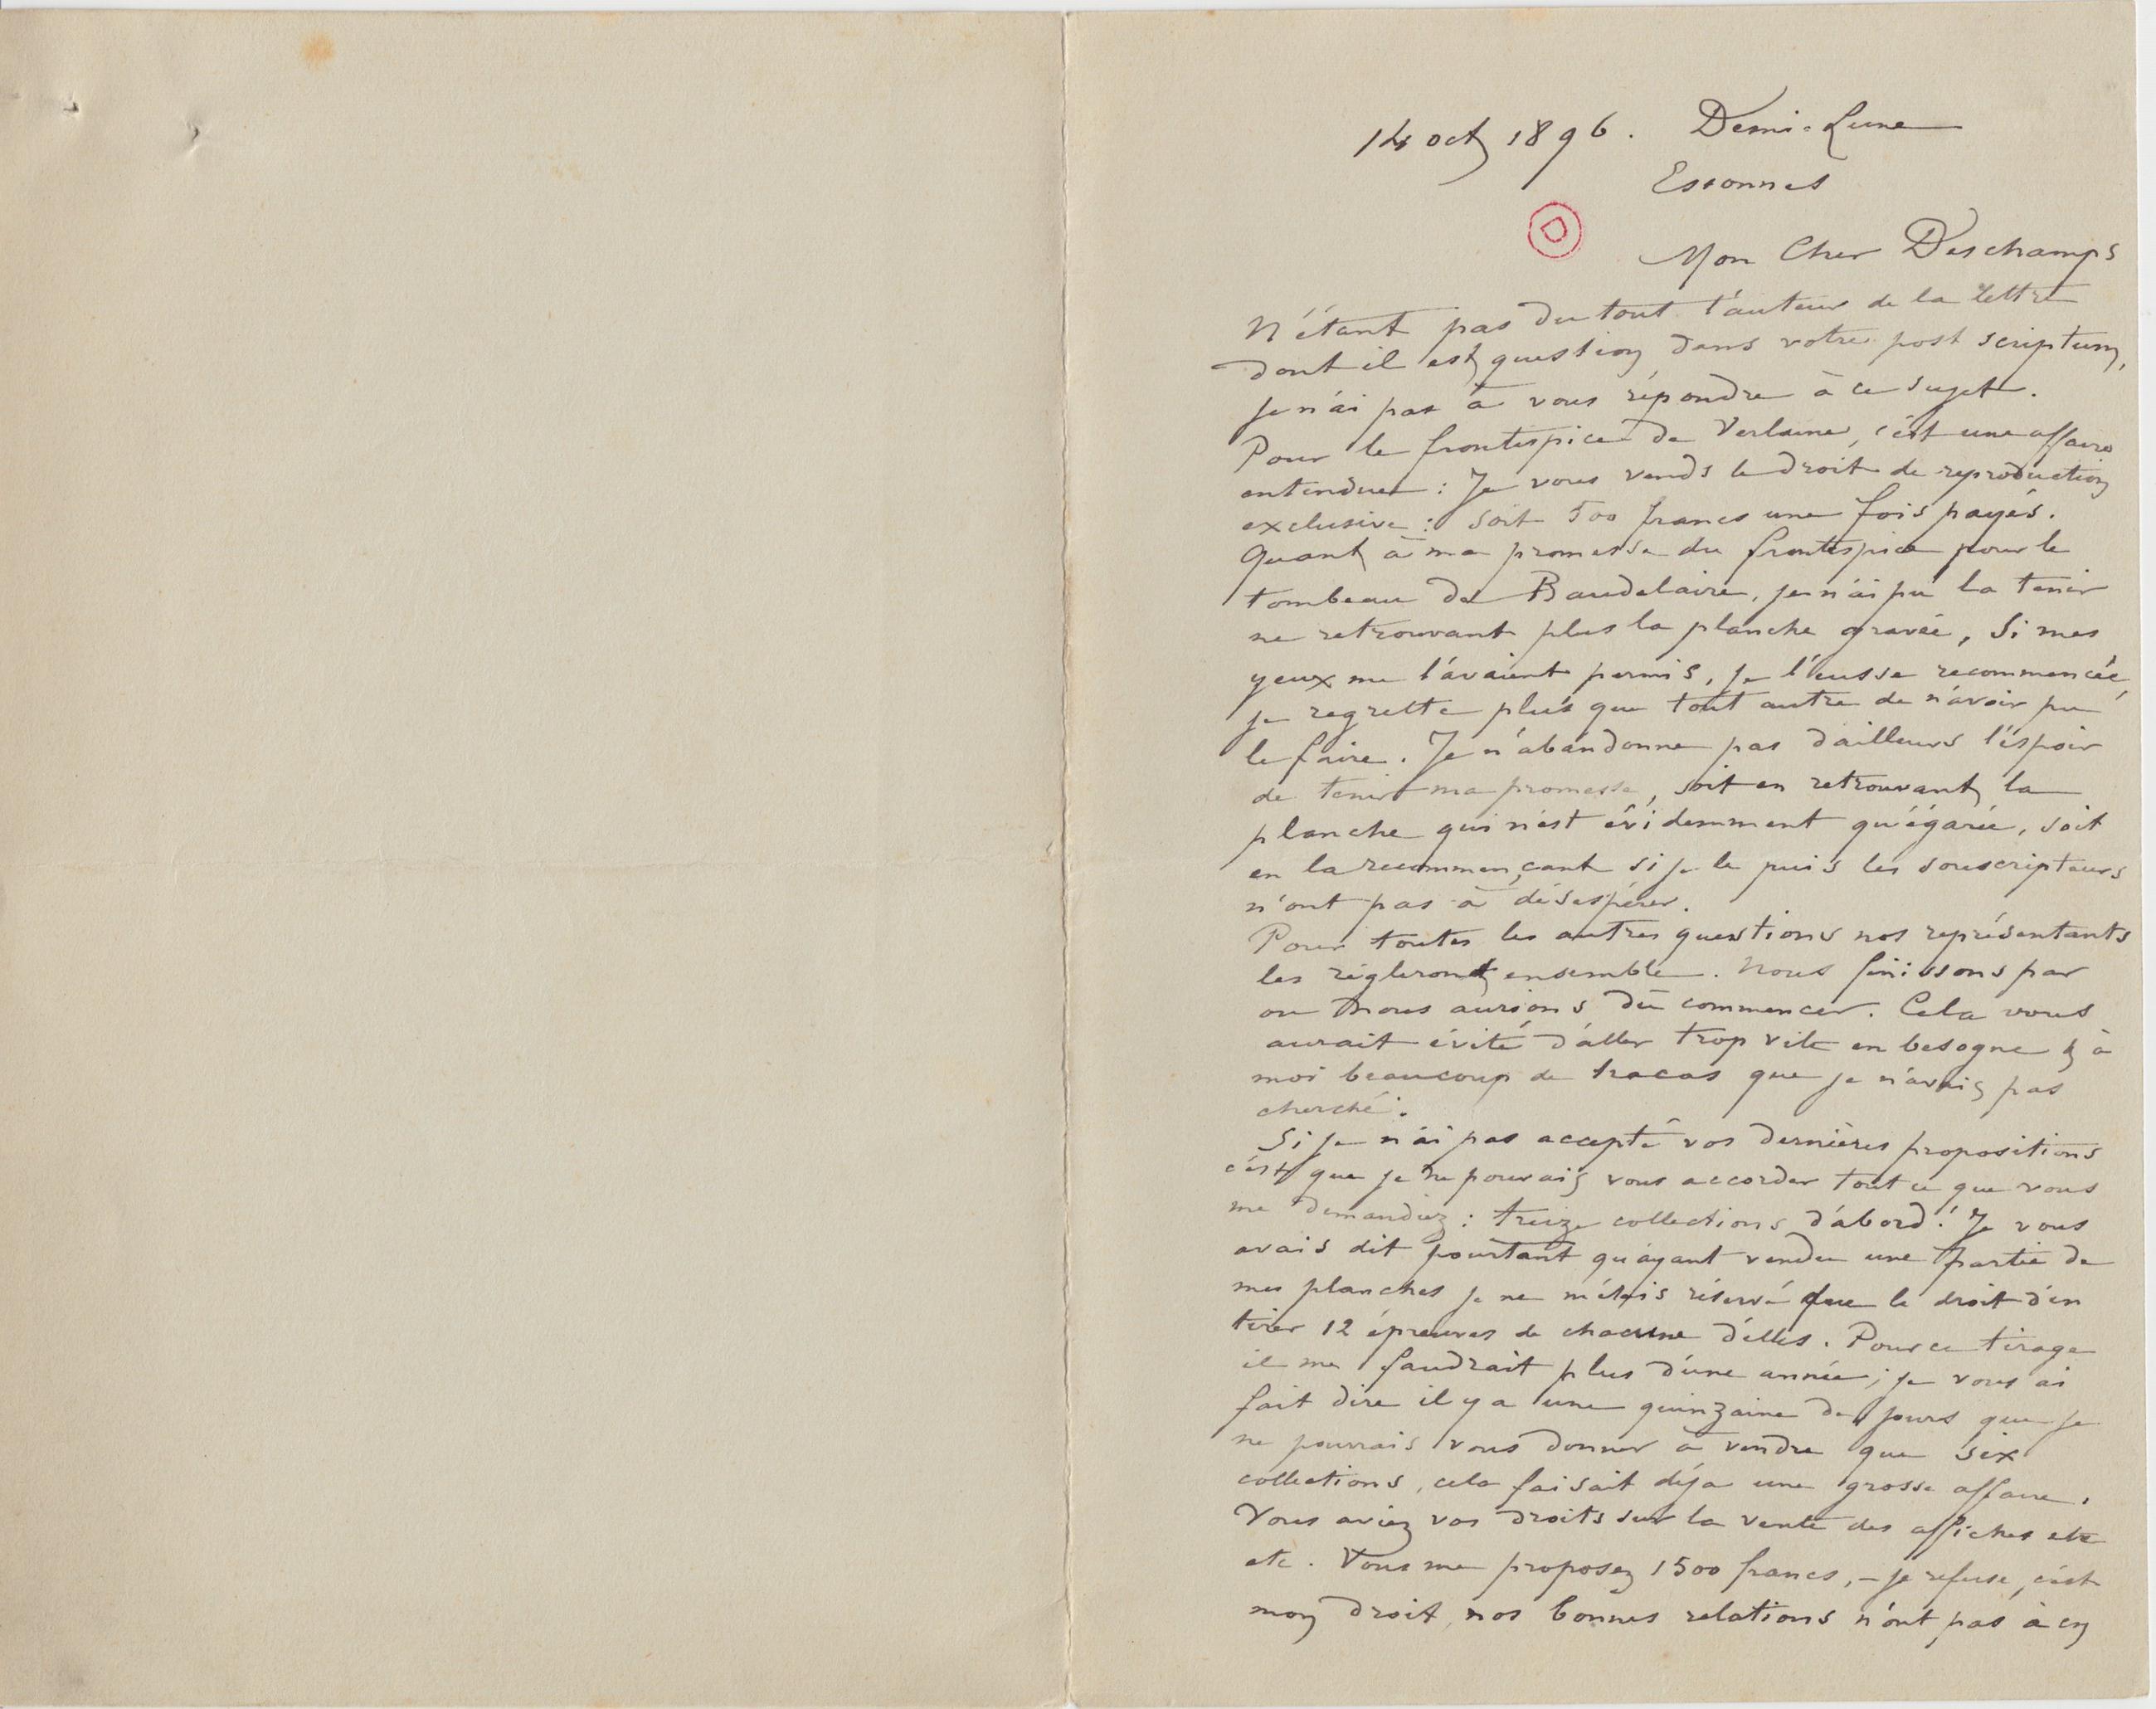 14 oct 1896. Demi-Lune
Essonnes
D
Mon Cher Deschamps
N'étant pas du tout l'auteur de la lettre
dont il est question dans votre post scriptum,
je n'ai pas à vous répondre à ce sujet.
Pour le frontispice de Verlaine, c'est une affaire
entendue : Je vous vends le droit de reproduction
exclusive : soit 500 francs une fois payés.
Quant à ma promesse du frontispice pour le
tombeau de Baudelaire, je n'ai pu la tenir
ne retrouvant plus la planche gravée, Si mes
yeux me l'avaient permis, je l'eusse recommencée,
je regrette plus que tout autre de n'avoir pu
le faire. Je n'abandonne pas d'ailleurs l'espoir
de tenir ma promesse, soit en retrouvant la
planche qui n'est évidemment qu'égarée, soit
en la recommençant si je le puis les souscripteurs
n'ont pas à désespérer.
Pour toutes les autres questions nos représentants
les régleront ensemble. Nous finissons par
ou nous aurions dû commencer. Cela vous
aurait évité d'aller trop vite en besogne & à
moi beaucoup de tracas que je n'avais pas
cherché.
Si je n'ai pas accepté vos dernières propositions
c'est que je ne pouvais vous accorder tout ce que vous
me demandiez : treize collections d'abord ! Je vous
avais dit pourtant qu'ayant vendu une partie de
mes planches je ne m'étais réservé que le droit d'en
tirer 12 épreuves de chacune d'elles. Pour ce tirage
il me faudrait plus d'une année ; je vous ai
fait dire il y a une quinzaine de jours que je
ne pourrais vous donner à vendre que six
collections, cela faisait déja une grosse affaire.
Vous aviez vos droits sur la vente des affiches etc
etc. Vous me proposez 1500 francs, – je refuse, c'est
mon droit, nos bonnes relations n'ont pas à en